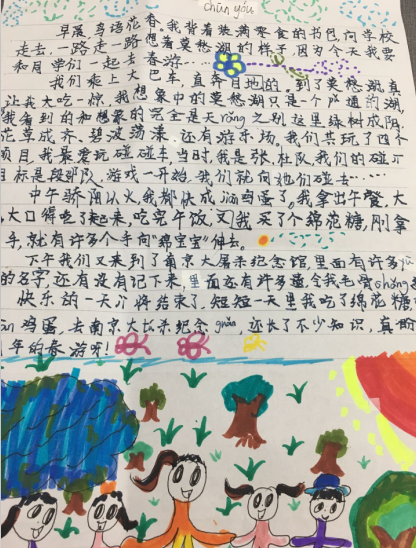 chūn yóu
早晨,鸟语花香,我背着装满零食的书包,向学校
走去,一路走一路想着莫愁湖的样子,因为今天我要
和同学们一起去春游……
我们乘上大巴车,直奔目的地。到了莫愁湖,真
让我大吃一惊,我想象中的莫愁湖只是一个普通的湖,
我看到的和想象的完全是天rǎng之别,这里绿树成阴,
花草成齐、碧波荡漾、还有游乐场。我们共玩了四个
项目,我最爱玩碰碰车,当时,我是张、杜队,我们的碰
目标是段 队,游戏一开始,我们就向他们碰去……
中午骄阳以火,我都快成 鸡蛋了。我拿出午餐,大
大口得吃了起来,吃完午饭,又我买了个绵花糖,刚拿
手,就有许多个手向“绵宝宝”伸去。
下午我们又来到了南京大屠杀纪念馆,里面有许多
的名字,还有没有记下来,里面还有许多 ,令我毛骨
快乐的一天 将结束了,短短一天里我吃了绵花糖、
鸡蛋,去南京大 杀纪念guǎn,还长了不少知识,真
年的春游呀!